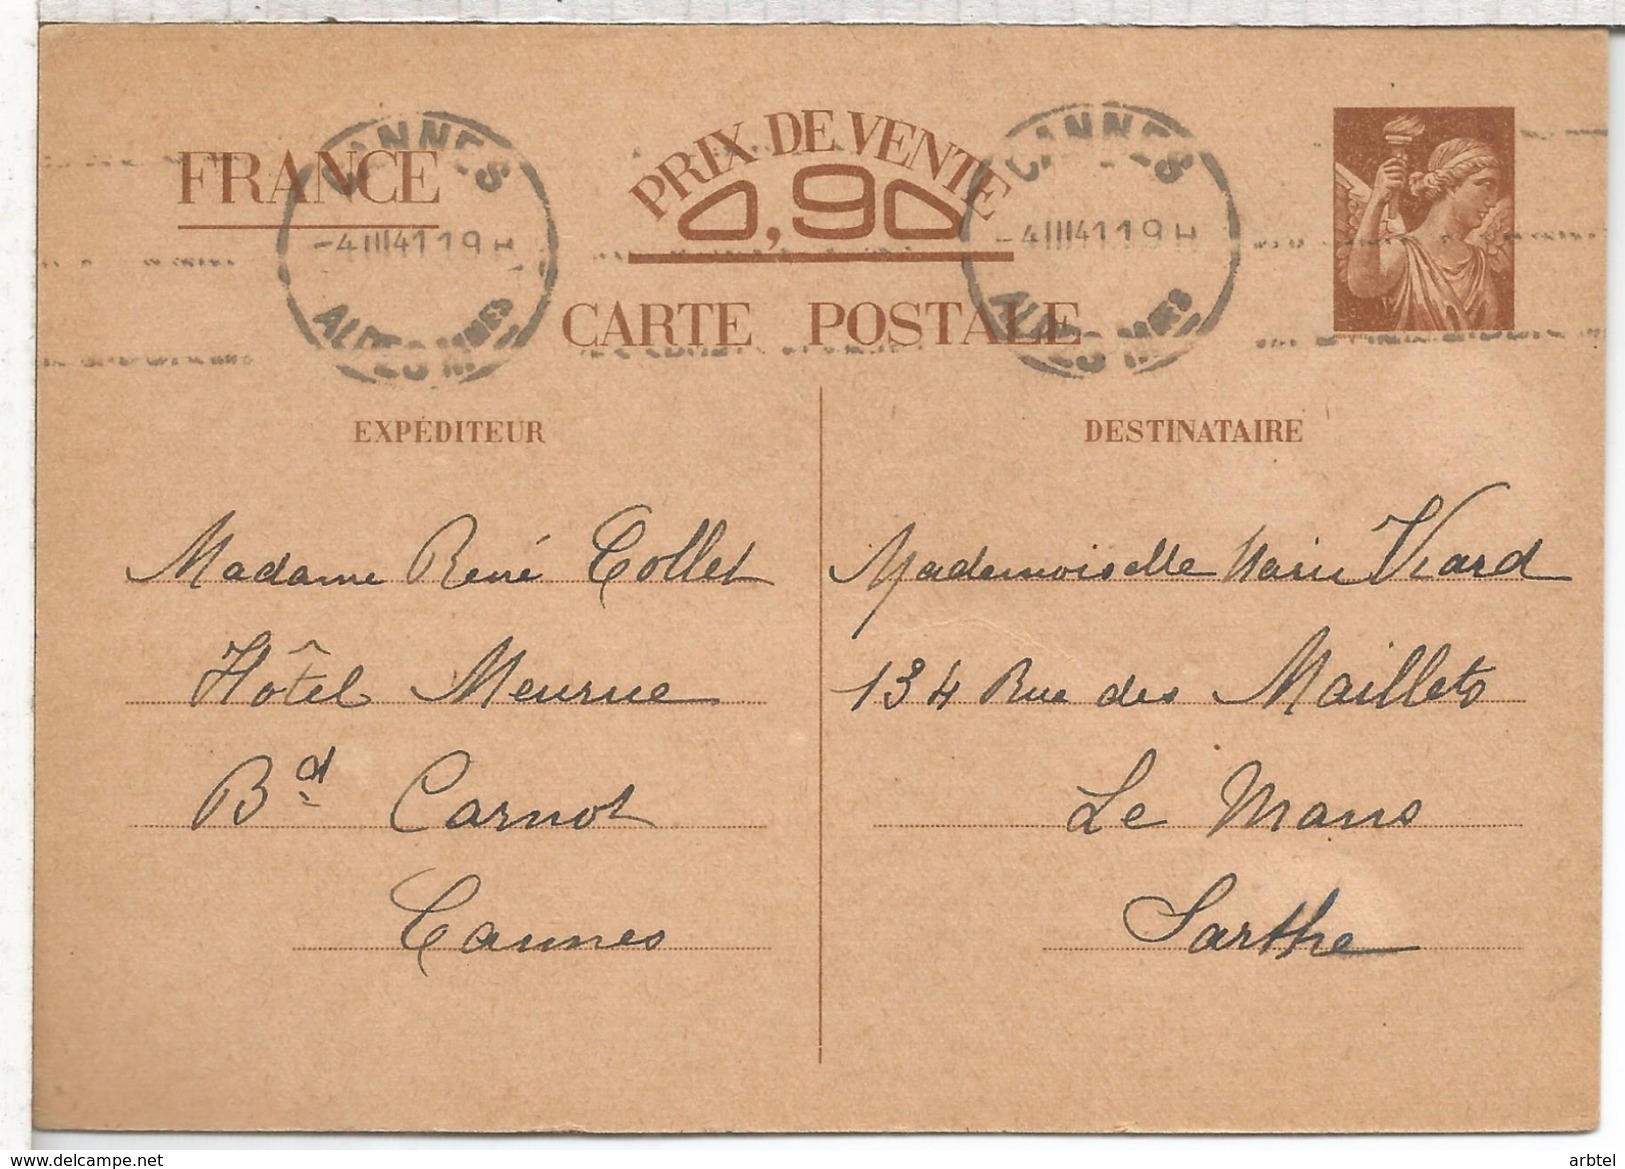 FRANCE
PRIX DE VENTE
0,90
CARTE POSTALE
CANNES
-4 III 41 19 H
ALPES MMES
CANNES
-4 III 41 19 H
ALPES MMES
EXPÉDITEUR
Madame René Collet
Hôtel Meurne
Bd Carnot
Cannes
DESTINATAIRE
Mademoiselle Marie Viard
134 Rue des Maillets
Le Mans
Sarthe
www.delcampe.net
arbtel